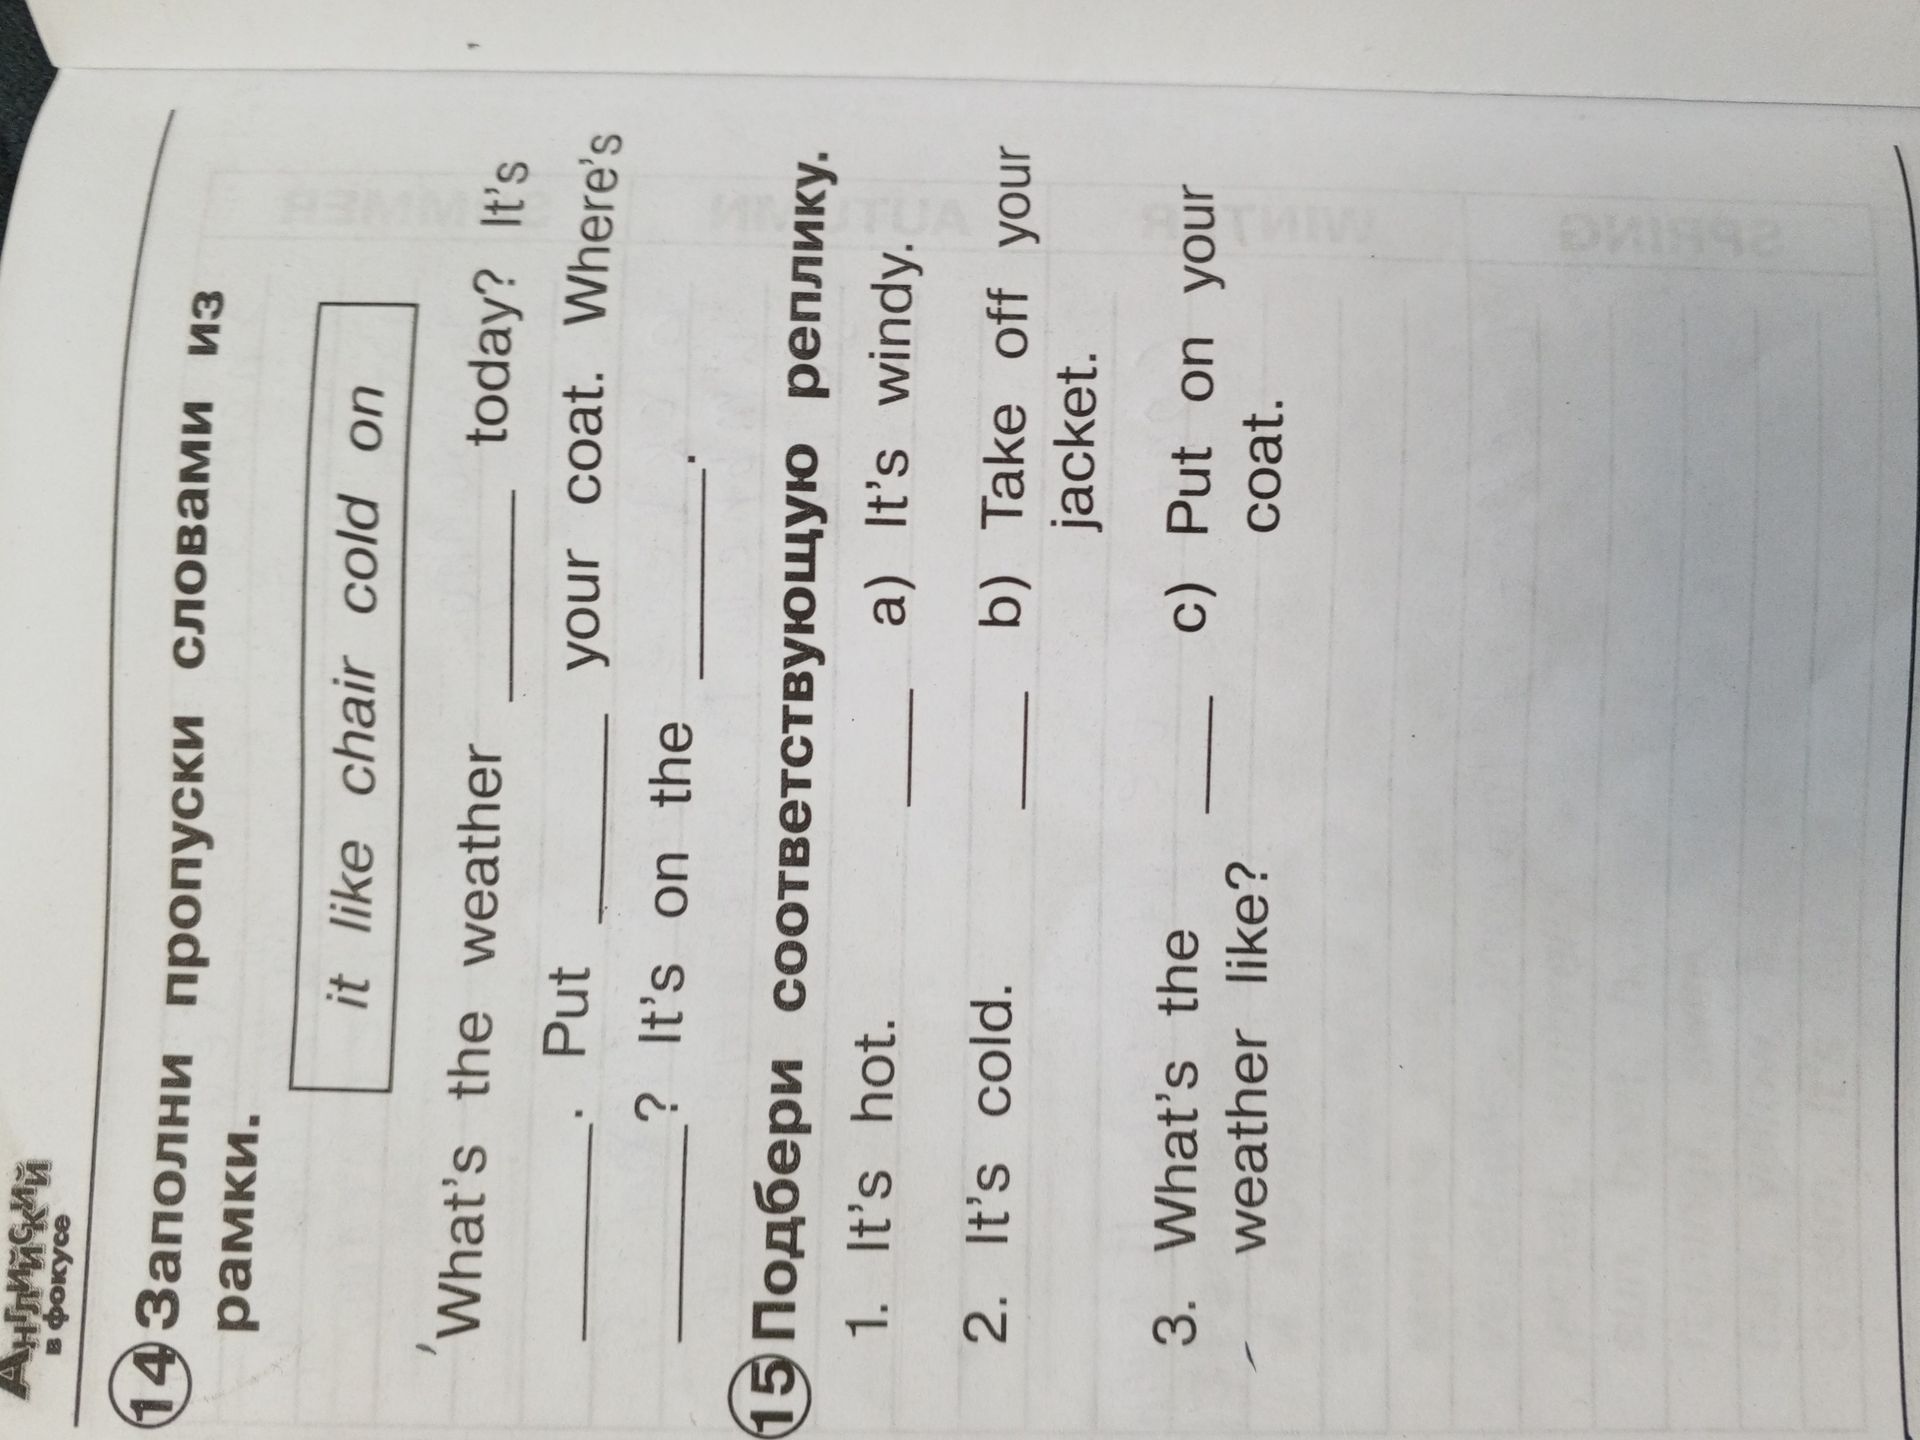 Английский
в фокусе
14 Заполни пропуски словами из
рамки.
it like chair cold on
What's the weather ____ today? It's
____. Put ____ your coat. Where's
____? It's on the ____.
15 Подбери соответствующую реплику.
1. It's hot. ____ a) It's windy.
2. It's cold. ____ b) Take off your
jacket.
3. What's the ____ c) Put on your
weather like? coat.
SUMMER AUTUMN WINTER SPRING